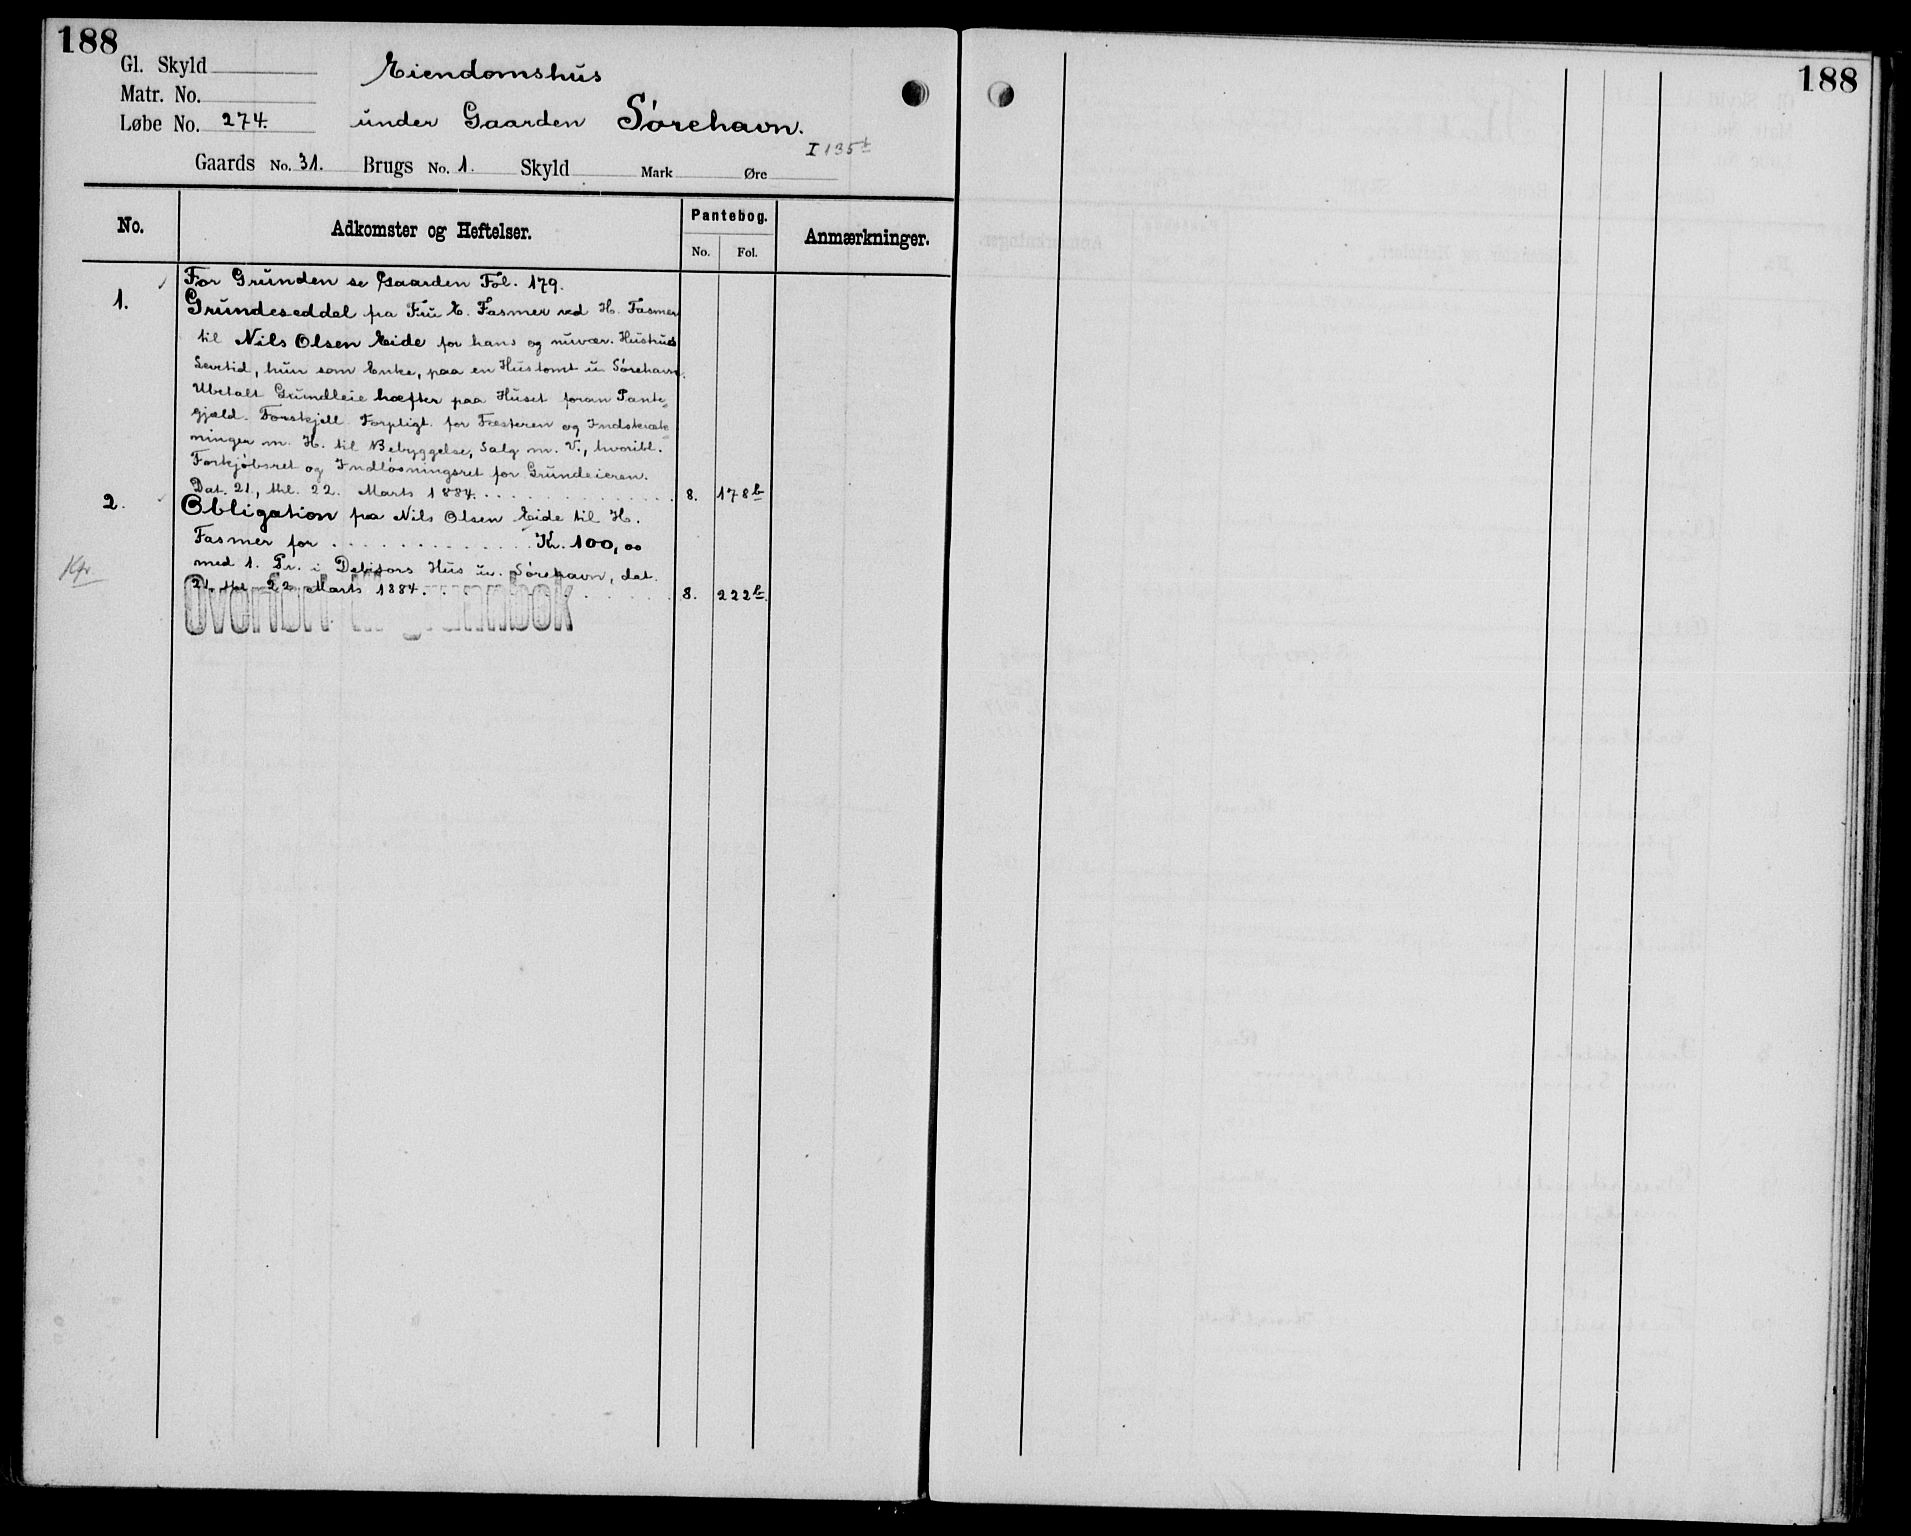 188
Gl. Skyld
Matr. No.
Løbe No. 274.
Eiendomshus
under Gaarden Sørehavn.
I 135
Gaards No. 31. Brugs No. 1. Skyld Mark Øre
No. Adkomster og Heftelser. Pantebog. Anmærkninger.
No. Fol.
For Grunden se Gaarden Fol. 179.
1. Grundeseddel fra Fru E. Fasmer ved H. Fasmer
til Nils Olsen Eide for hans og nuvær. Hustrus
Levetid, hun som Enke, paa en Hustomt u. Sørehavn.
Ubetalt Grundleie hæfter paa Huset foran Pante-
gjæld. Forskjell. Forpligt. for Fæsteren og Indskrænk-
ninger m. H. til Bebyggelse, Salg m. V., hvoribl.
Forkjøbsret og Indløsningsret for Grundeieren.
Dat. 21, thl. 22. Marts 1884. 8. 178b
2. Obligation fra Nils Olsen Eide til H.
Fasmer for Kr. 100,00
Kfr.
med 1. Pr. i Debitors Hus u. Sørehavn, dat.
21. thl. 22 Marts 1884. 8. 222b.
Overført til grunnbok
188